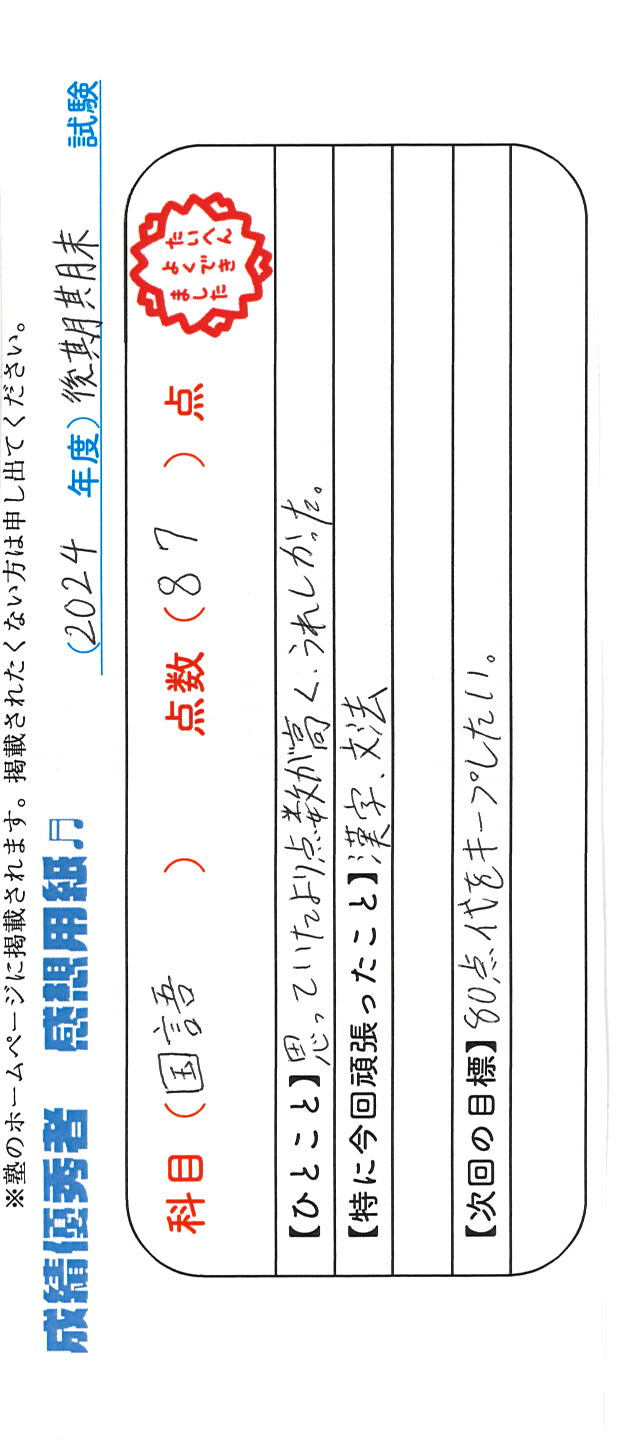 ※塾のホームページに掲載されます。掲載されたくない方は申し出てください。
成績優秀者 感想用紙♫ (2024 年度) 後期期末 試験
科目 ( 国語 ) 点数 ( 87 ) 点
たいへん
よくでき
ました
【ひとこと】思っていたより点数が高く、うれしかった。
【特に今回頑張ったこと】漢字、文法
【次回の目標】80点代をキープしたい。